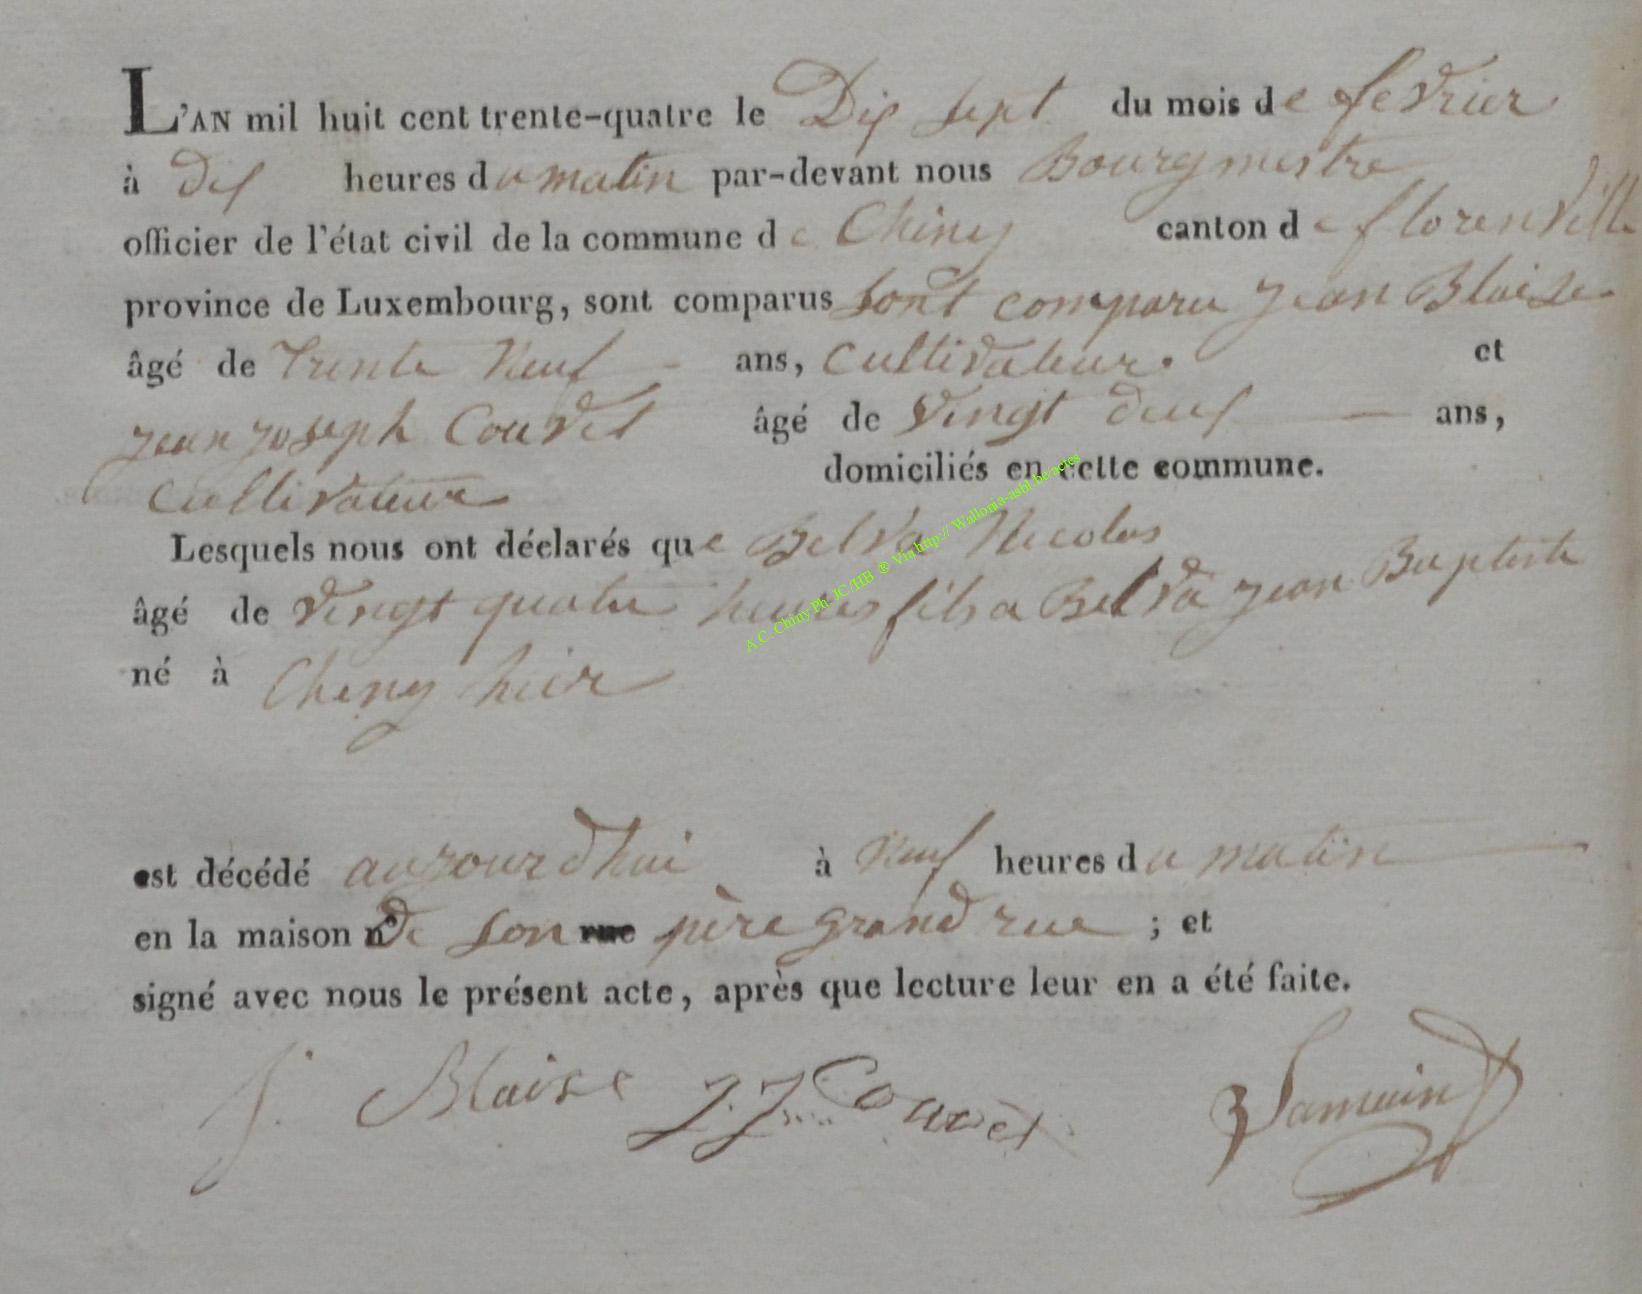 L'AN mil huit cent trente-quatre le Dix sept du mois de fevrier
à dix heures du matin par-devant nous Bourgmestre
officier de l'état civil de la commune de Chiny canton de florenville
province de Luxembourg, sont comparus sont comparu jean Blaise
âgé de trente neuf ans, Cultivateur. et
jean joseph Couvet âgé de vingt deux ans,
Cultivateur domiciliés en cette commune.
Lesquels nous ont déclarés que Belva Nicolas
âgé de vingt quatre heures fils a Belva jean Baptiste
né à Chiny hier
est décédé aujourd'hui à neuf heures du matin
en la maison n° de son rue père grand rue ; et
signé avec nous le présent acte, après que lecture leur en a été faite.
J. Blaise J. J. Couvet
A.C. Chiny Ph. JC/HB ® Via http:// Wallonia-asbl.be/actes